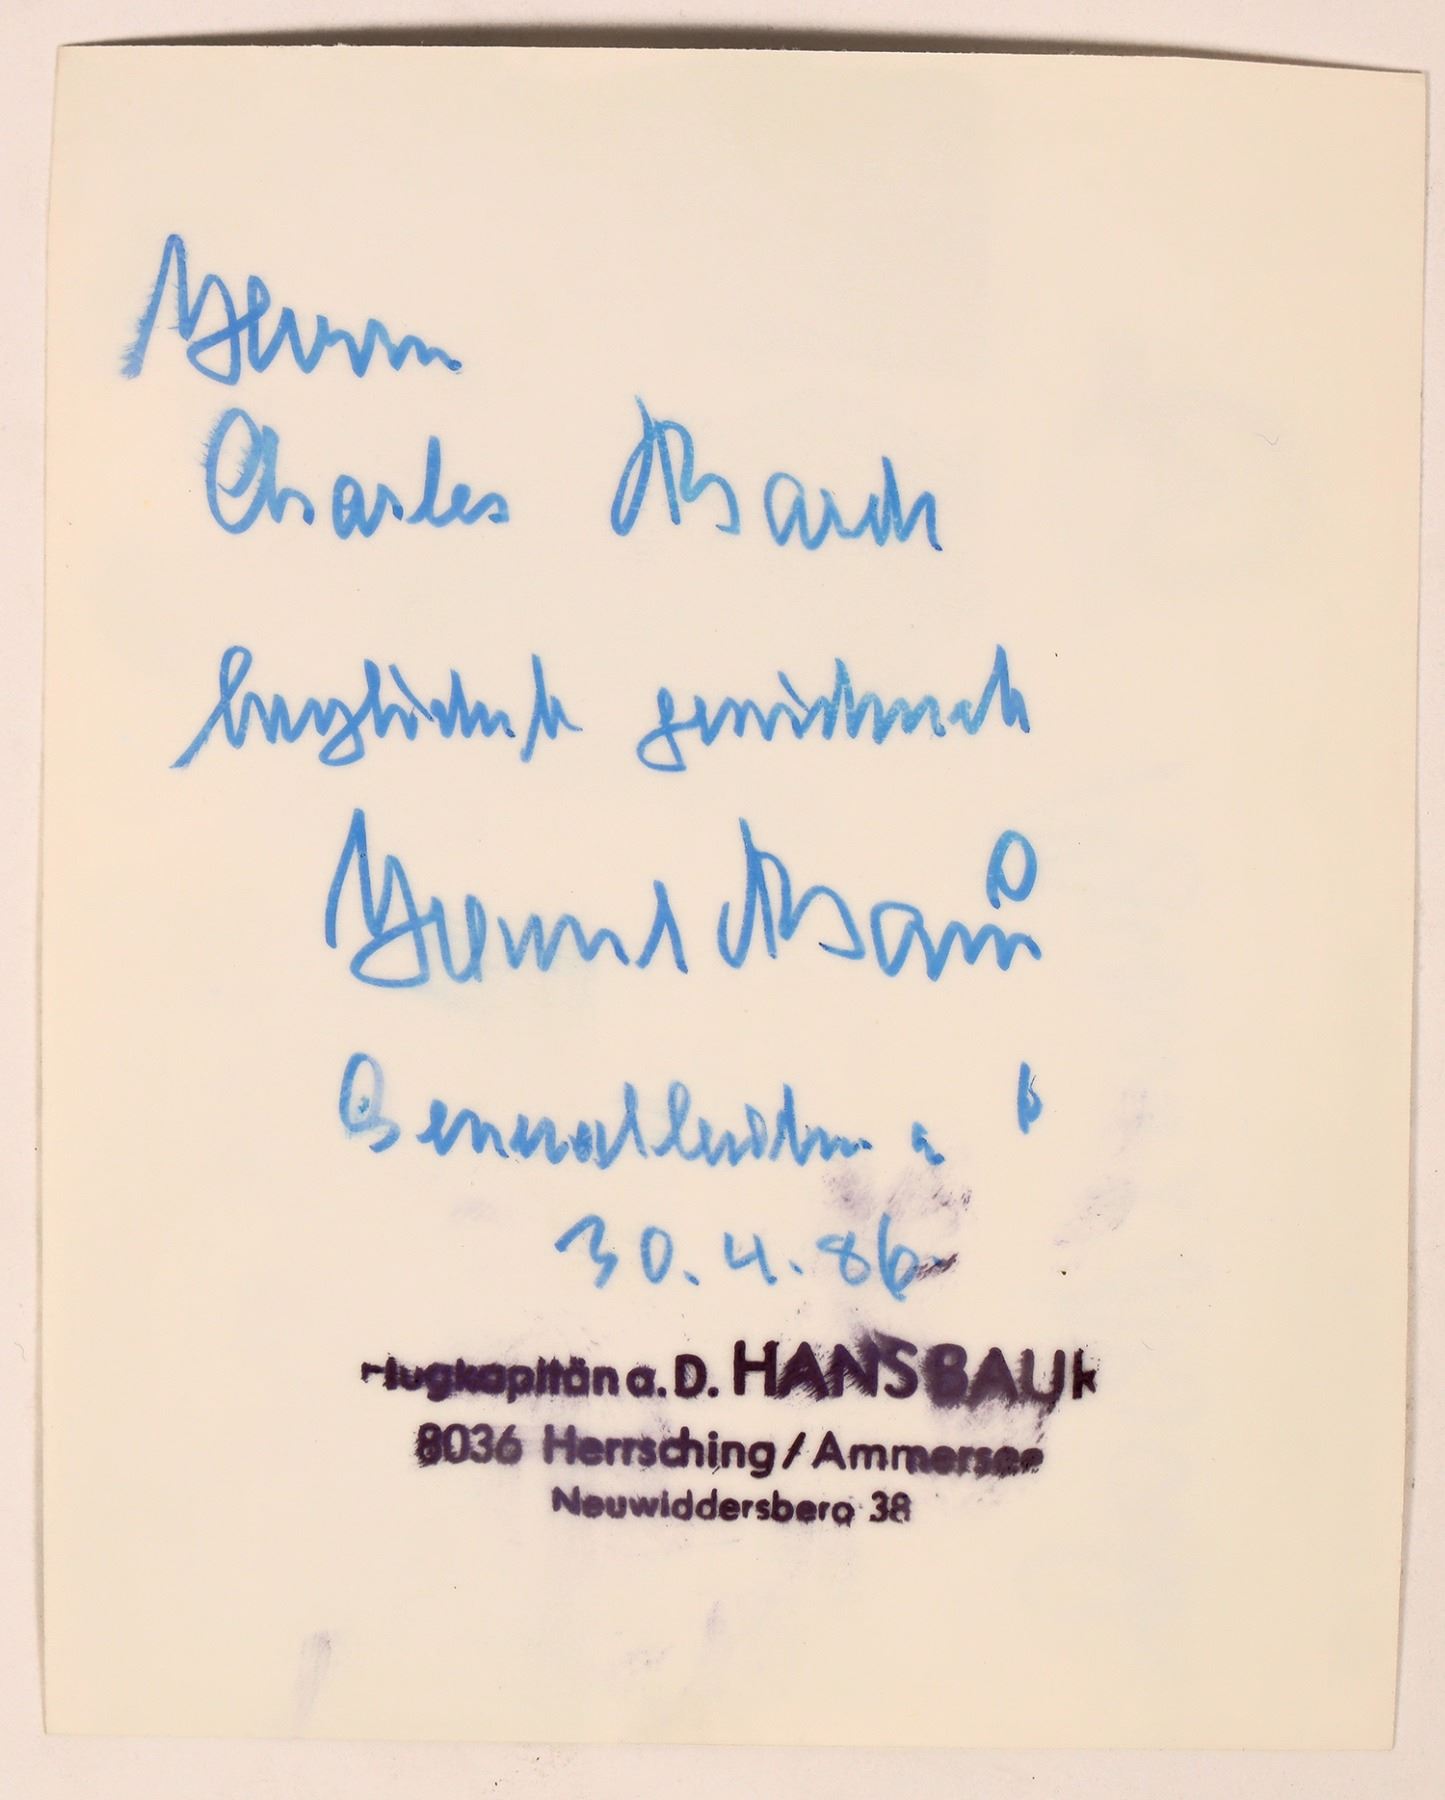 Herrn
Charles Barch
herzlichst gewidmet
Hans Baur
Generalleutn a D
30.4.86
Flugkapitän a. D. HANS BAUR
8036 Herrsching / Ammersee
Neuwiddersberg 38